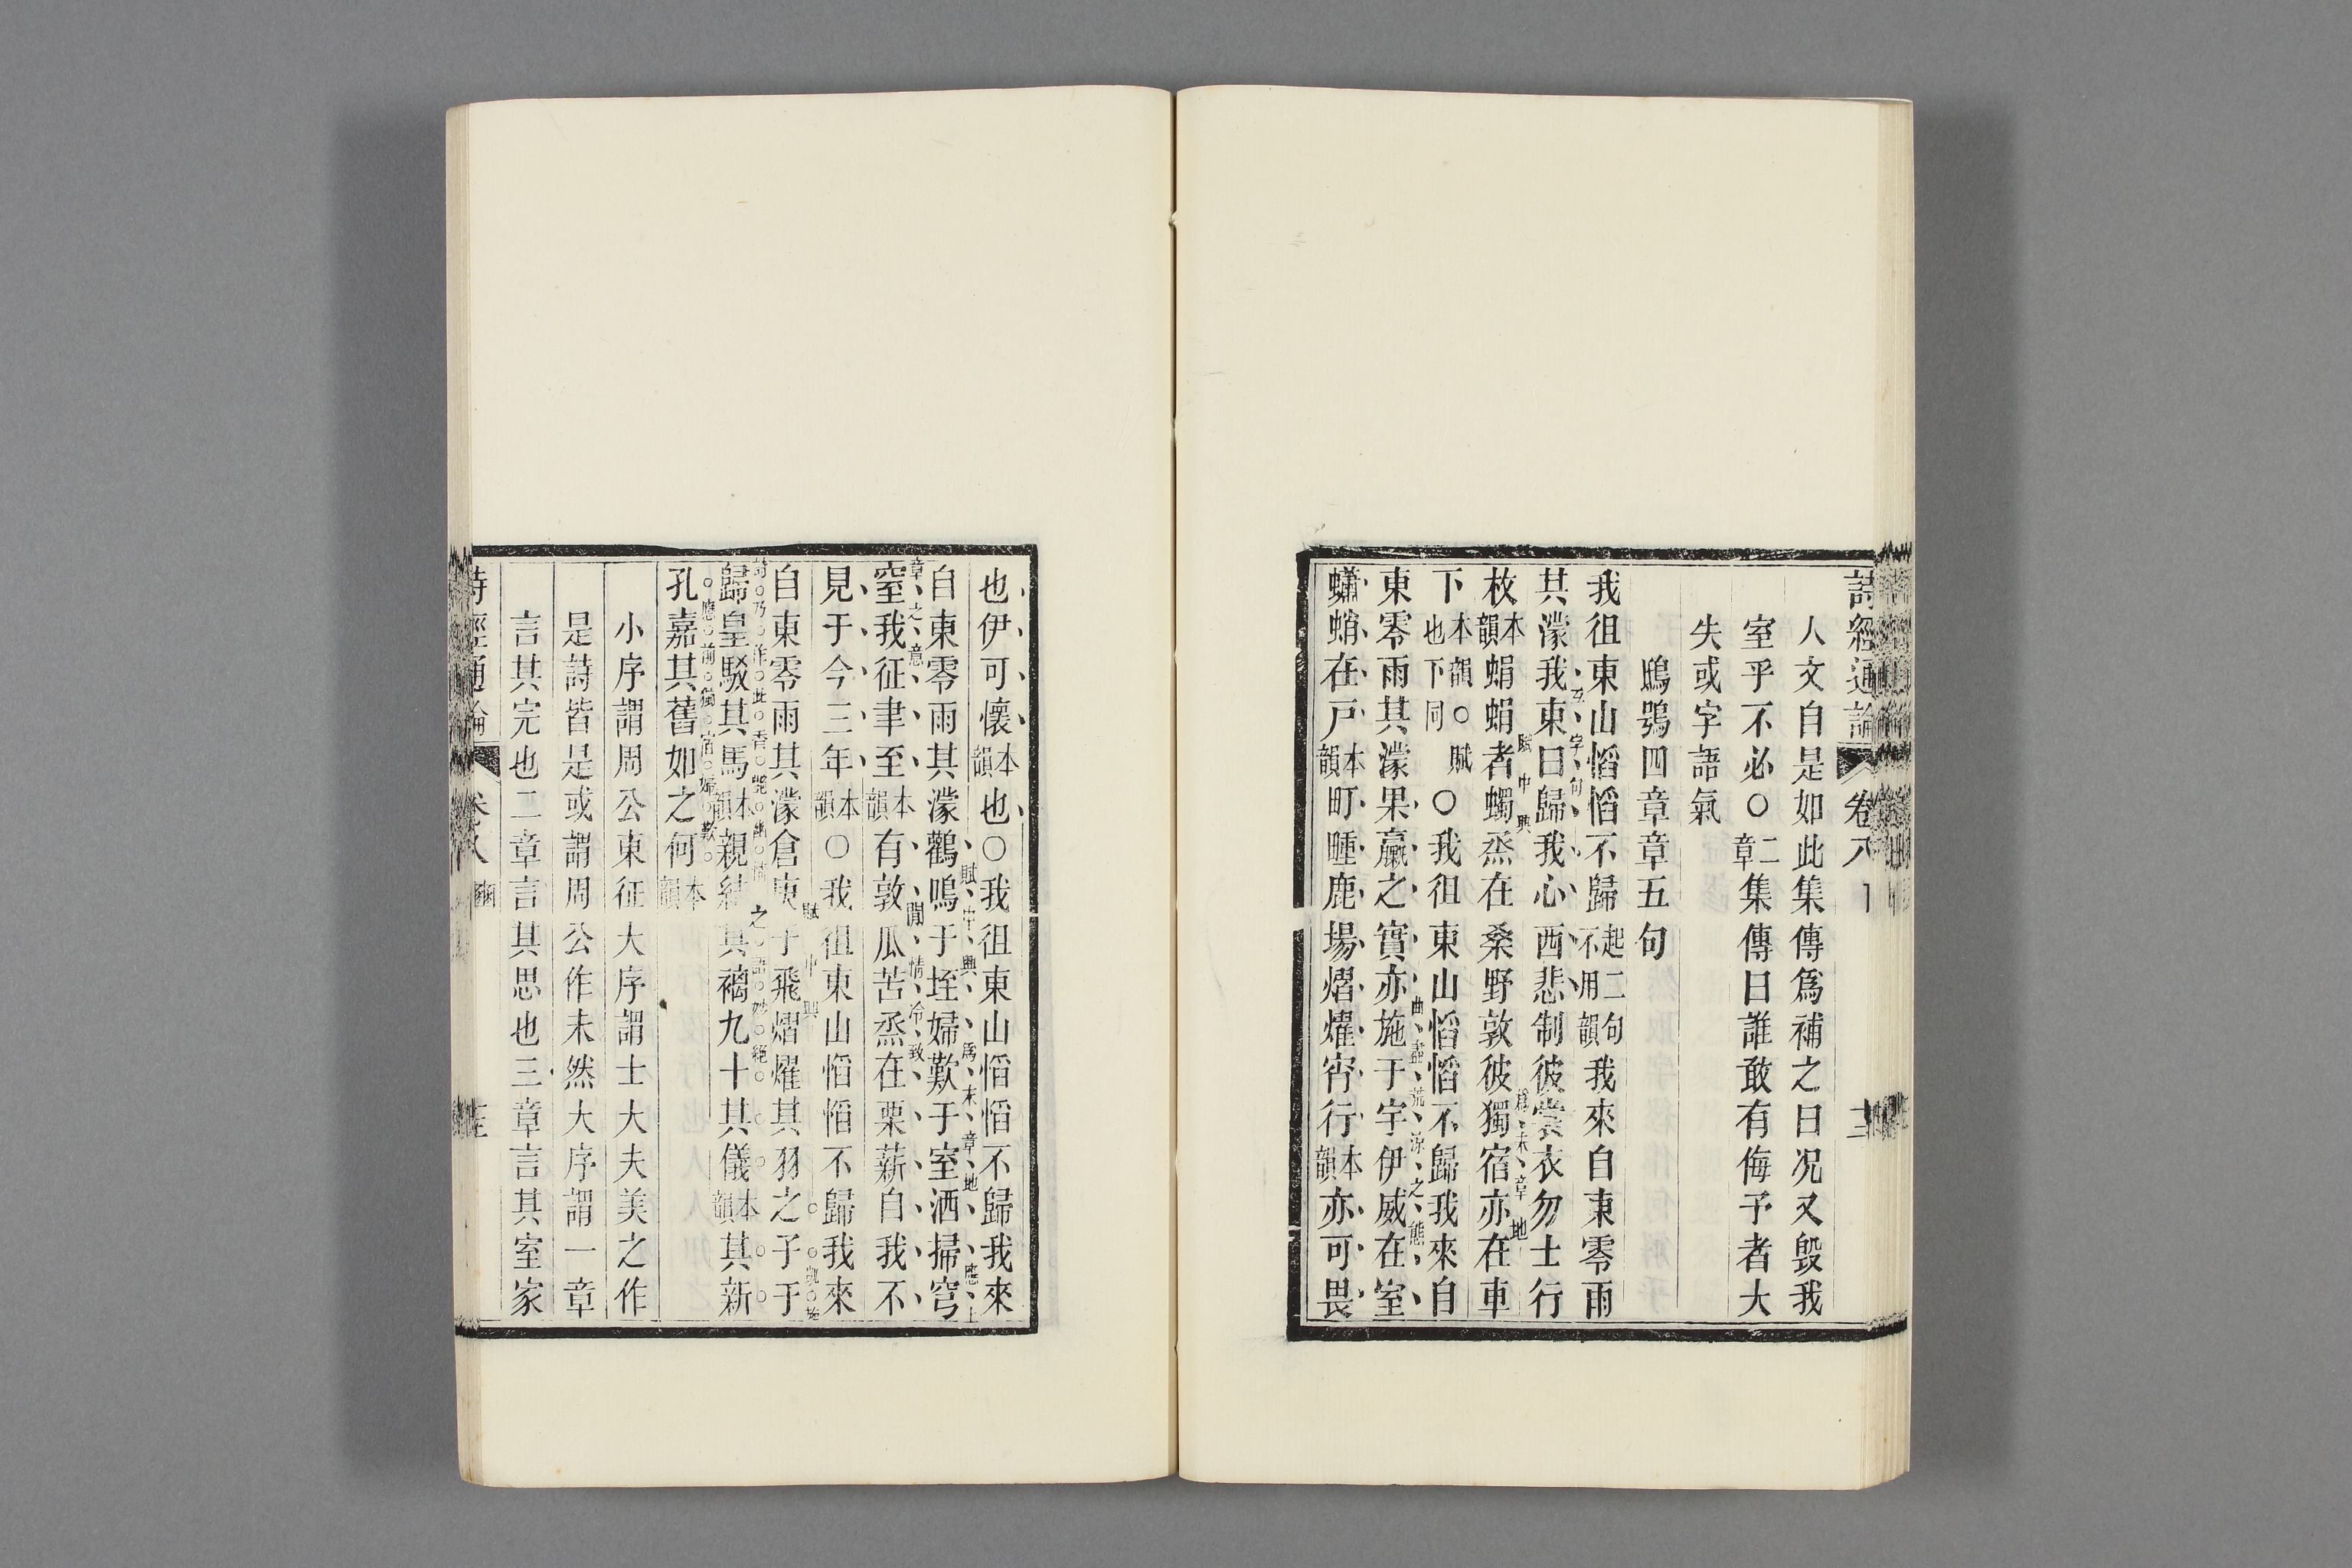 詩經通論 卷八
人文自是如此集傳爲補之曰况又毀我
室乎不必○二章集傳曰誰敢有侮予者大
失或字語氣
鴟鴞四章章五句
我徂東山慆慆不歸起二句不用韻我來自東零雨
其濛我東曰歸我心西悲制彼裳衣勿士行
枚本韻蜎蜎者蠋烝在桑野敦彼獨宿亦在車
下本韻也下同○賦○我徂東山慆慆不歸我來自
東零雨其濛果臝之實亦施于宇伊威在室
蠨蛸在戸本韻町畽鹿場熠燿宵行本韻亦可畏
也伊可懷本韻也○我徂東山慆慆不歸我來
自東零雨其濛鸛鳴于垤婦歎于室洒掃穹
窒我征聿至本韻有敦瓜苦烝在栗薪自我不
見于今三年本韻○我徂東山慆慆不歸我來
自東零雨其濛倉庚于飛熠燿其羽之子于
歸皇駁其馬本韻親結其褵九十其儀本韻其新
孔嘉其舊如之何本韻
小序謂周公東征大序謂士大夫美之作
是詩皆是或謂周公作未然大序謂一章
言其完也二章言其思也三章言其室家
詩經通論 卷八 豳